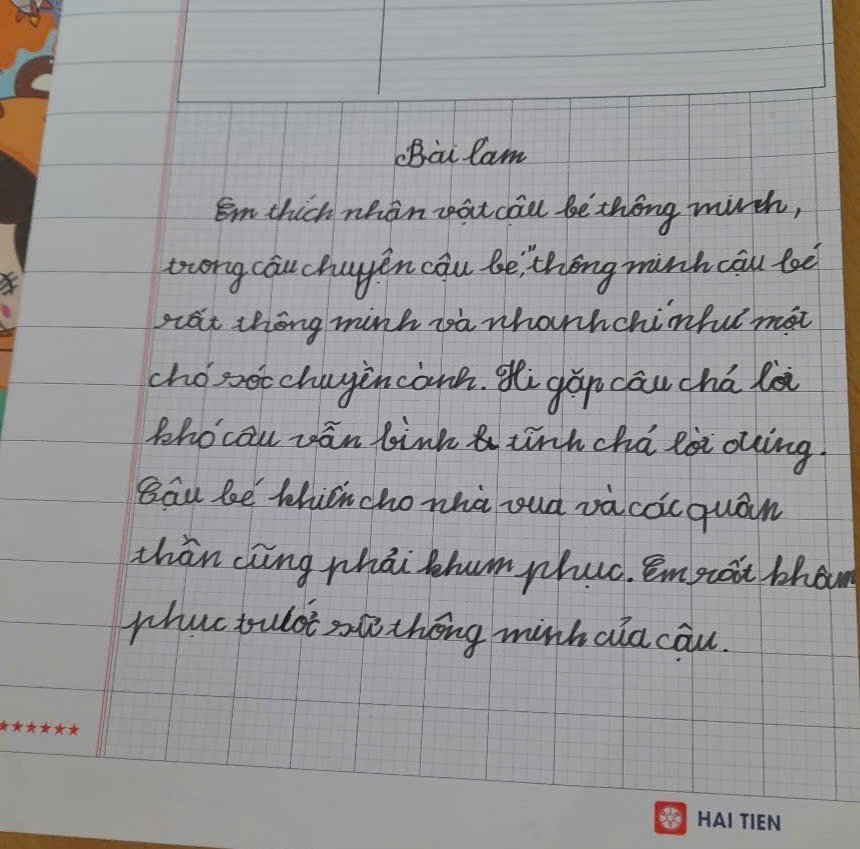 Bài làm
Em thích nhân vật cậu bé thông minh,
trong câu chuyện cậu bé,"thông minh cậu bé
rất thông minh và nhanh chí như một
chó sóc chuyền cành. Hi gặp câu chá lời
khó cậu vẫn bình tĩnh chá lời đúng.
Cậu bé khiến cho nhà vua và các quân
thần cũng phải khum phục. Em rất khâm
phục trước sự thông minh của cậu.
HAI TIEN